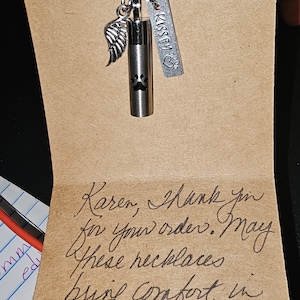 KISSES
Karen, Thank you
for your order. May
these necklaces
bring comfort in